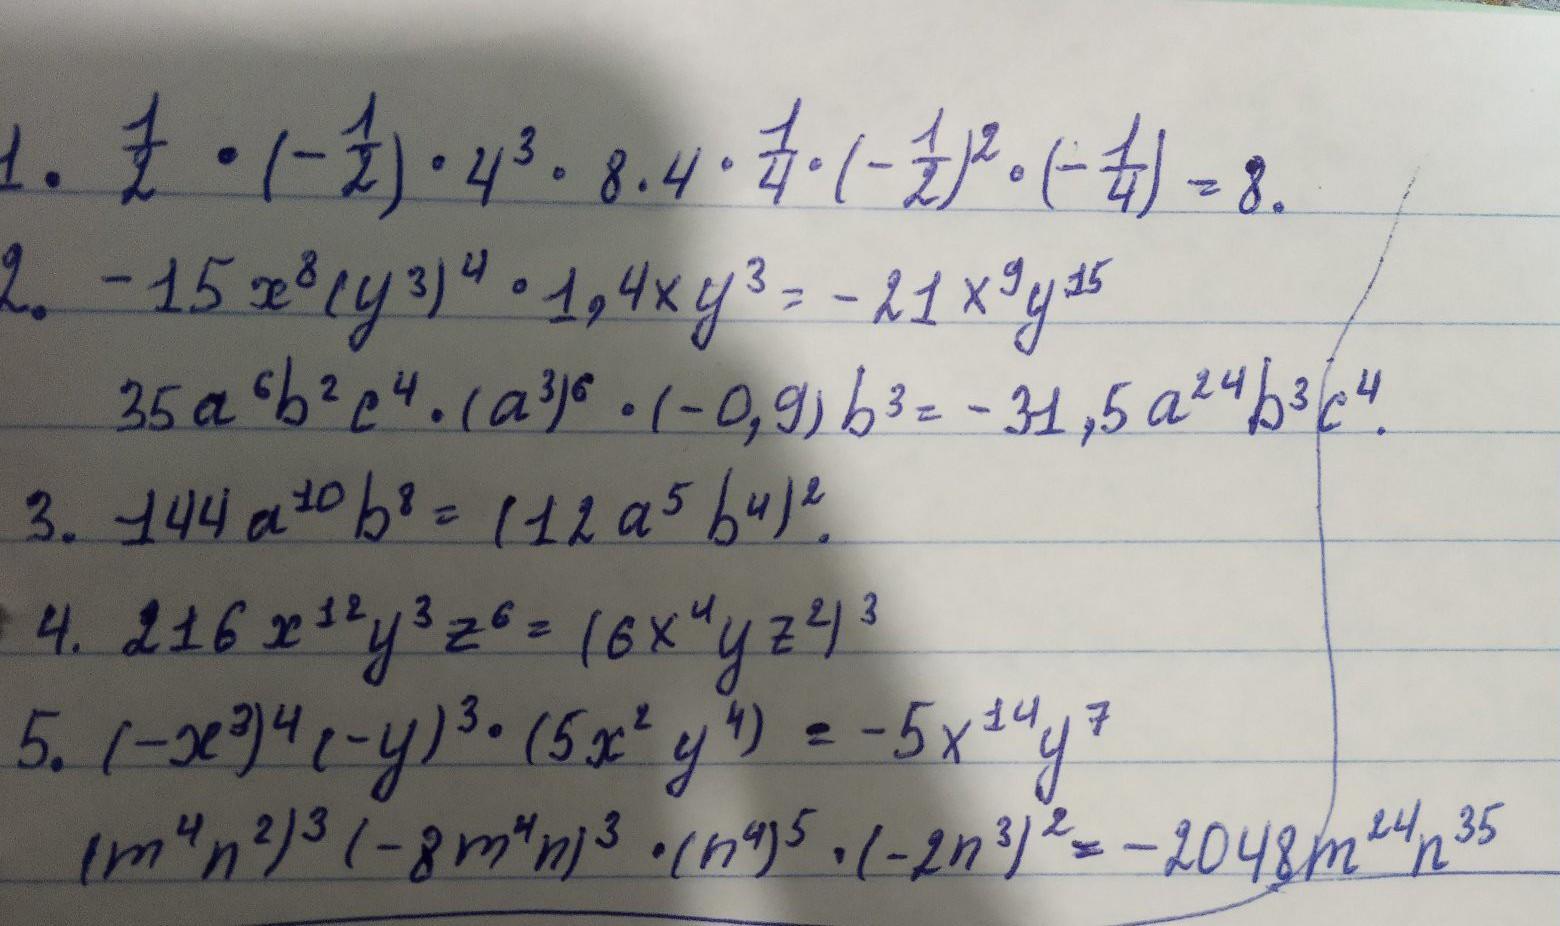 1. 1/2 · (-1/2) · 4³ · 8 . 4 · 1/4 · (-1/2)² · (-1/4) = 8.
2. -15x⁸(y³)⁴ · 1,4xy³ = -21x⁹y¹⁵
35a⁶b²c⁴ · (a³)⁶ · (-0,9)b³ = -31,5a²⁴b³c⁴.
3. 144a¹⁰b⁸ = (12a⁵b⁴)².
4. 216x¹²y³z⁶ = (6x⁴yz²)³
5. (-x³)⁴(-y)³ · (5x²y⁴) = -5x¹⁴y⁷
(m⁴n²)³(-8m⁴n)³ · (n⁴)⁵ · (-2n³)² = -2048m²⁴n³⁵